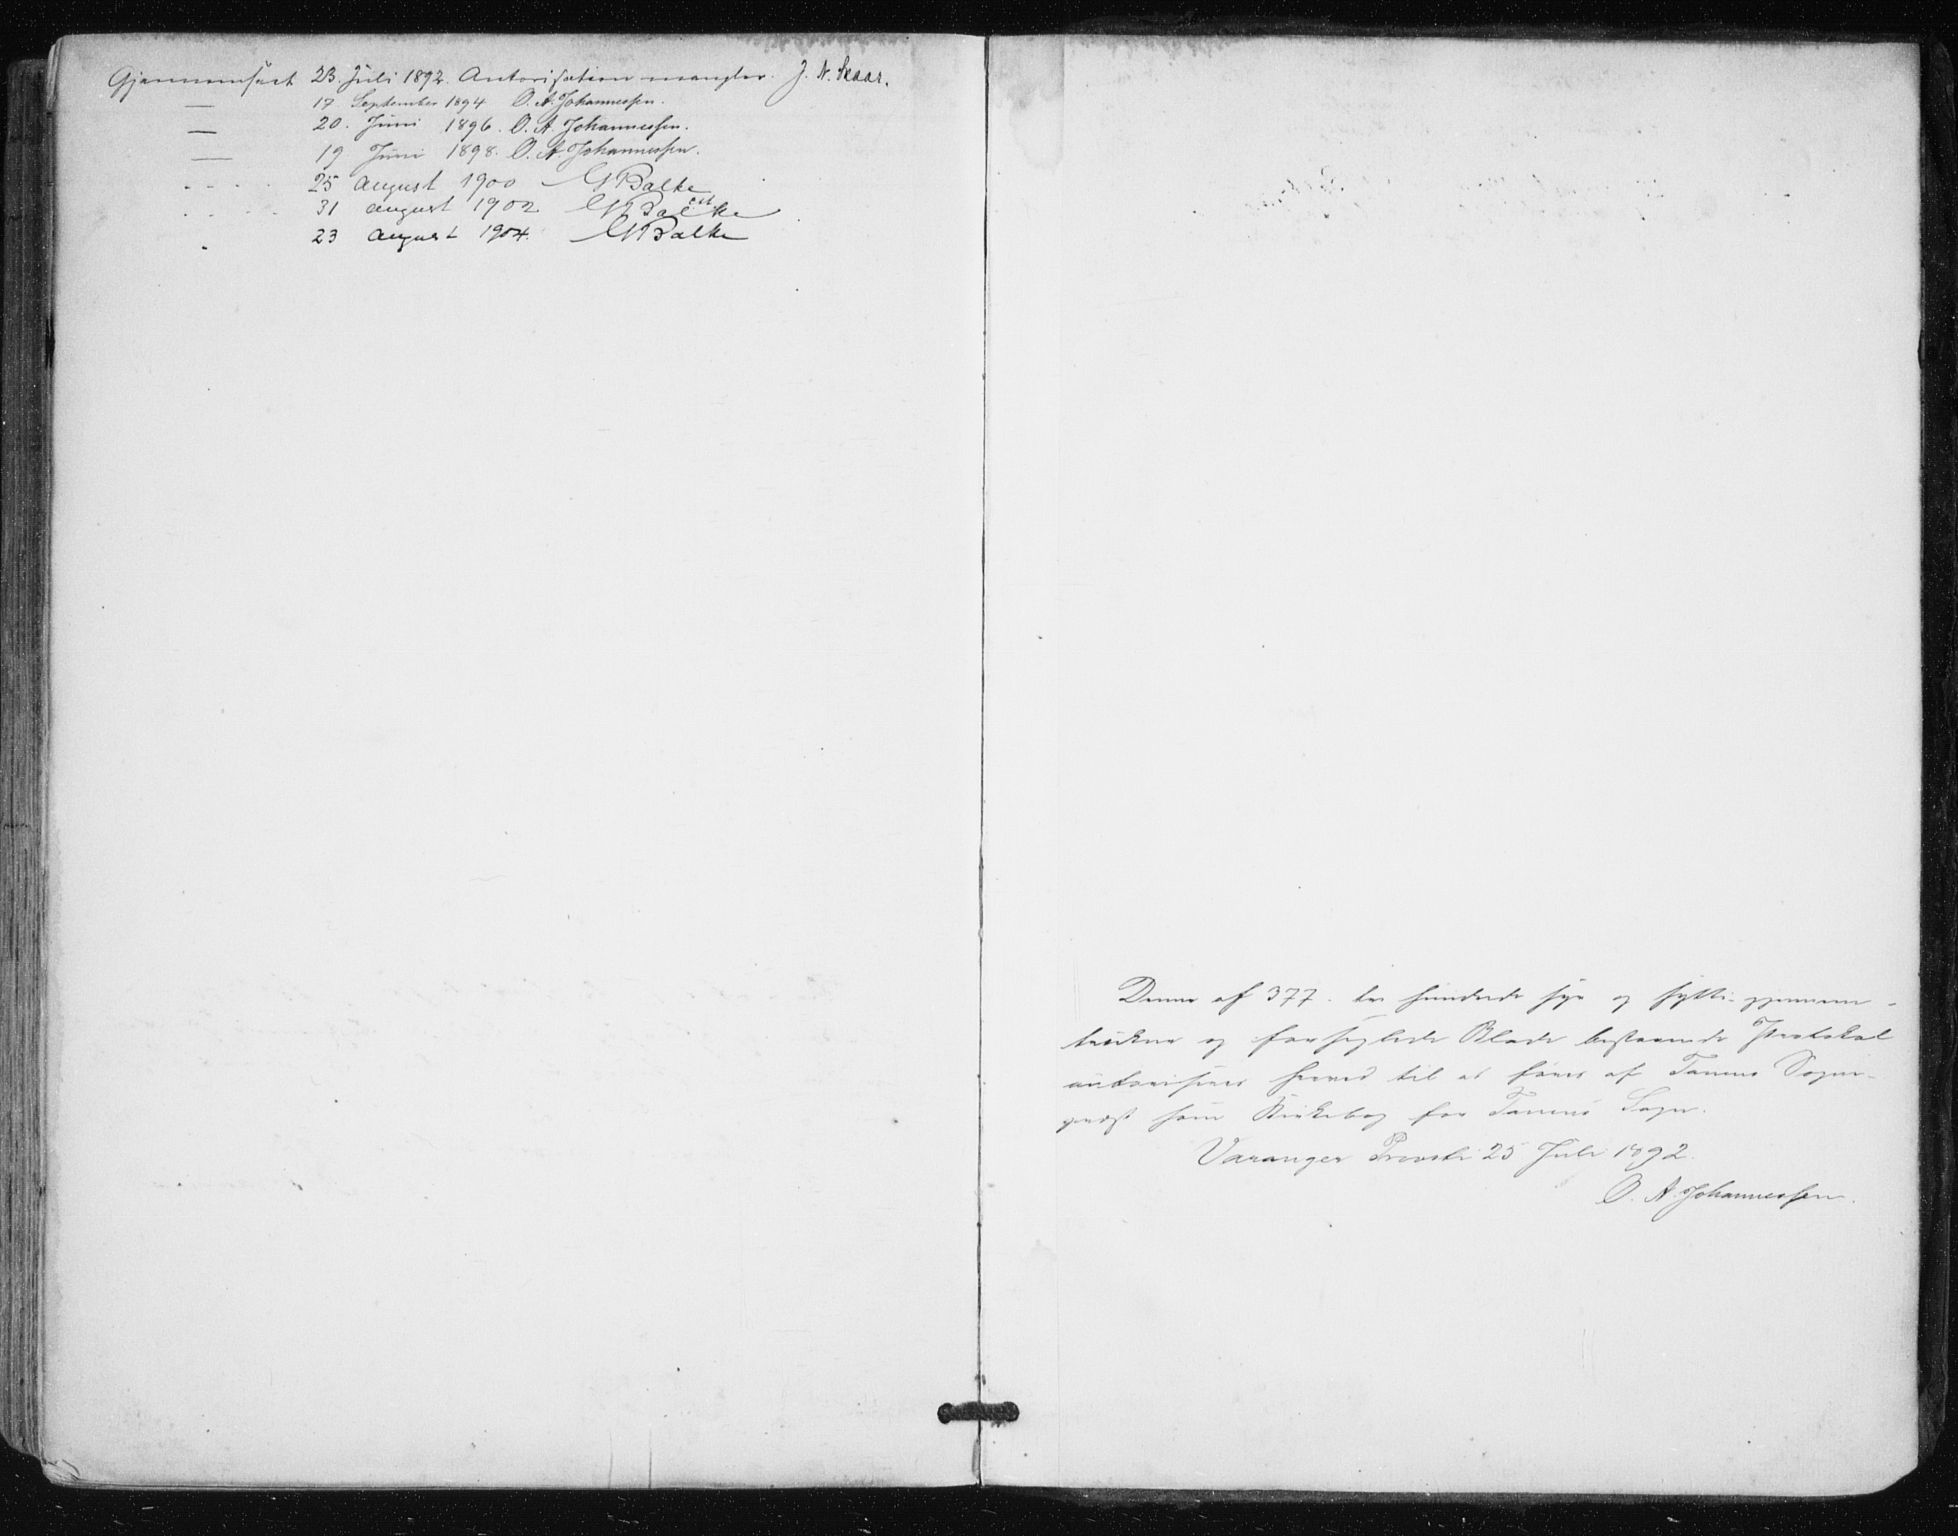 Gjennemseet 23. Juli 1892. Autorisation mangler. J. N. Skaar.
— 17 September 1894 O. A. Johannessen.
— 20. Juni 1896. O. A. Johannessen.
— 19 Juni 1898. O. A. Johannessen.
. . . . 25 august 1900 Balke
. . . . 31 august 1902 Balke
. 23 august 1904. Balke
Denne af 377. tre hundrede syv og sytti gjennem-
trukne og forseglede Blade bestaaende Protokol
autoriseres herved til at føres af Tanens Sogne-
præst som Kirkebog for Tanens Sogn.
Varanger Provsti 25 Juli 1892.
O. A. Johannessen.